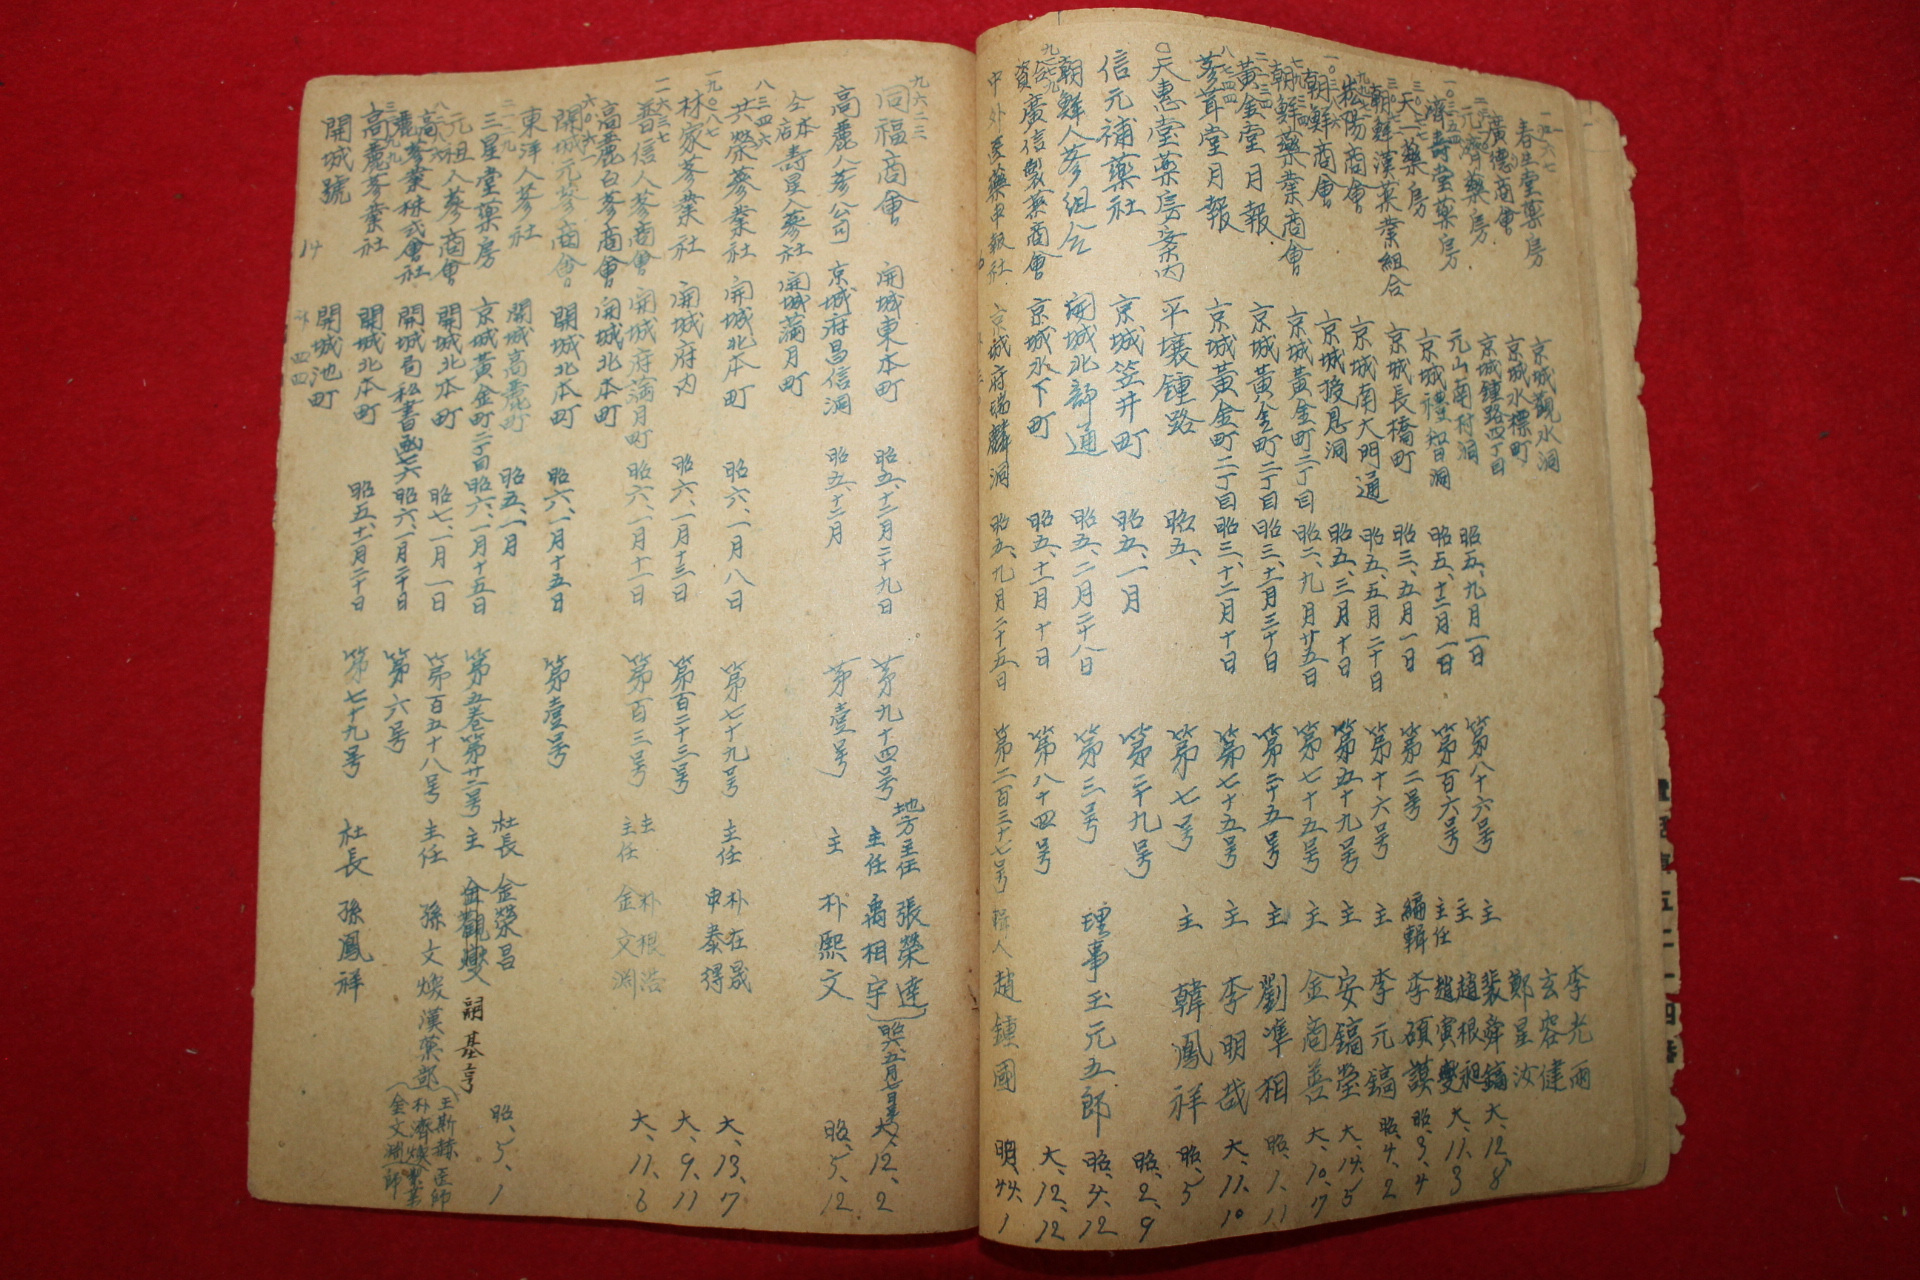 春生堂藥房 京城觀水洞 李光雨
廣德商會 京城水標町 玄容健
元濟藥房 京城鍾路四丁目 鄭星汝
濟壽堂藥房 元山南村洞 昭五、九月一日 第八十六号 主 裴舜鎬 大、12、8
天一藥房 京城禮智洞 昭五、十二月一日 第百六号 主 趙根昶 主任 趙寅燮 大、11、3
朝鮮漢藥業組合 京城長橋町 昭三、五月一日 第二号 編輯 李碩謨 昭、3、4
崧陽商會 京城南大門通 昭五、五月二十日 第十六号 主 李元鎬 昭、4、2
朝鮮商會 京城授恩洞 昭五、三月十日 第五十九号 主 安鎬瑩 大、14、5
朝鮮藥業商會 京城黃金町二丁目 昭二、九月廿五日 第七十五号 主 金商善 大、10、7
黃金堂月報 京城黃金町二丁目 昭三、十一月三十日 第二十五号 主 劉準相 昭、1、11
蔘茸堂月報 京城黃金町二丁目 昭三、十二月十日 第七十五号 主 李明哉 大、11、10
天惠堂藥房案內 平壤鍾路 昭五、 第七号 主 韓鳳祥 昭、5
信元補藥社 京城笠井町 昭五、一月 第二十九号 昭、2、9
朝鮮人蔘組合 開城北部通 昭五、二月二十八日 第三号 理事 玉元五郎 昭、4、12
廣信製藥商會 京城水下町 昭五、十一月十日 第八十四号 大、12、12
中外医藥申報社 京城府瑞麟洞 昭五、九月二十五日 第二百三十七号 趙鍾國 明、44、1
九六二三
同福商會 開城東本町 昭五、十二月二十九日 第九十四号 地方主任 張榮達 主任 禹相宇 大、12、2
高麗人蔘公司 京城府昌信洞 昭五、十二月 第壹号 主 朴熙文 昭、5、12
仝本店 壽星人蔘社 開城滿月町
八三四六
共榮蔘業社 開城北本町 昭六、一月八日 第七十九号 主任 朴在晟 申泰得 大、13、7
一九〇八七
林家蔘業社 開城府內 昭六、一月十三日 第百二十三号 大、9、11
二六三七
普信人蔘商會 開城府滿月町 昭六、一月十一日 第百三号 主 朴根浩 主任 金文淵 大、11、6
高麗白蔘商會 開城北本町
開城元蔘商會 開城北本町 昭六、一月十五日 第壹号
東洋人蔘社 開城高麗町 昭五、一月 社長 金榮昌 昭、5、1
三星堂藥房 京城黃金町二丁目 昭六、一月十五日 第五卷第廿二号 主 金觀燮
元祖人蔘商會 開城北本町 昭七、一月一日 第百五十八号 主任 孫文煥 漢藥部
高麗蔘業株式會社 開城局私書函七六 昭六、一月二十日 第六号
高麗蔘業社 開城北本町 昭五、十一月二十日 第七十九号 社長 孫鳳祥
開城號 開城池町
14
四四